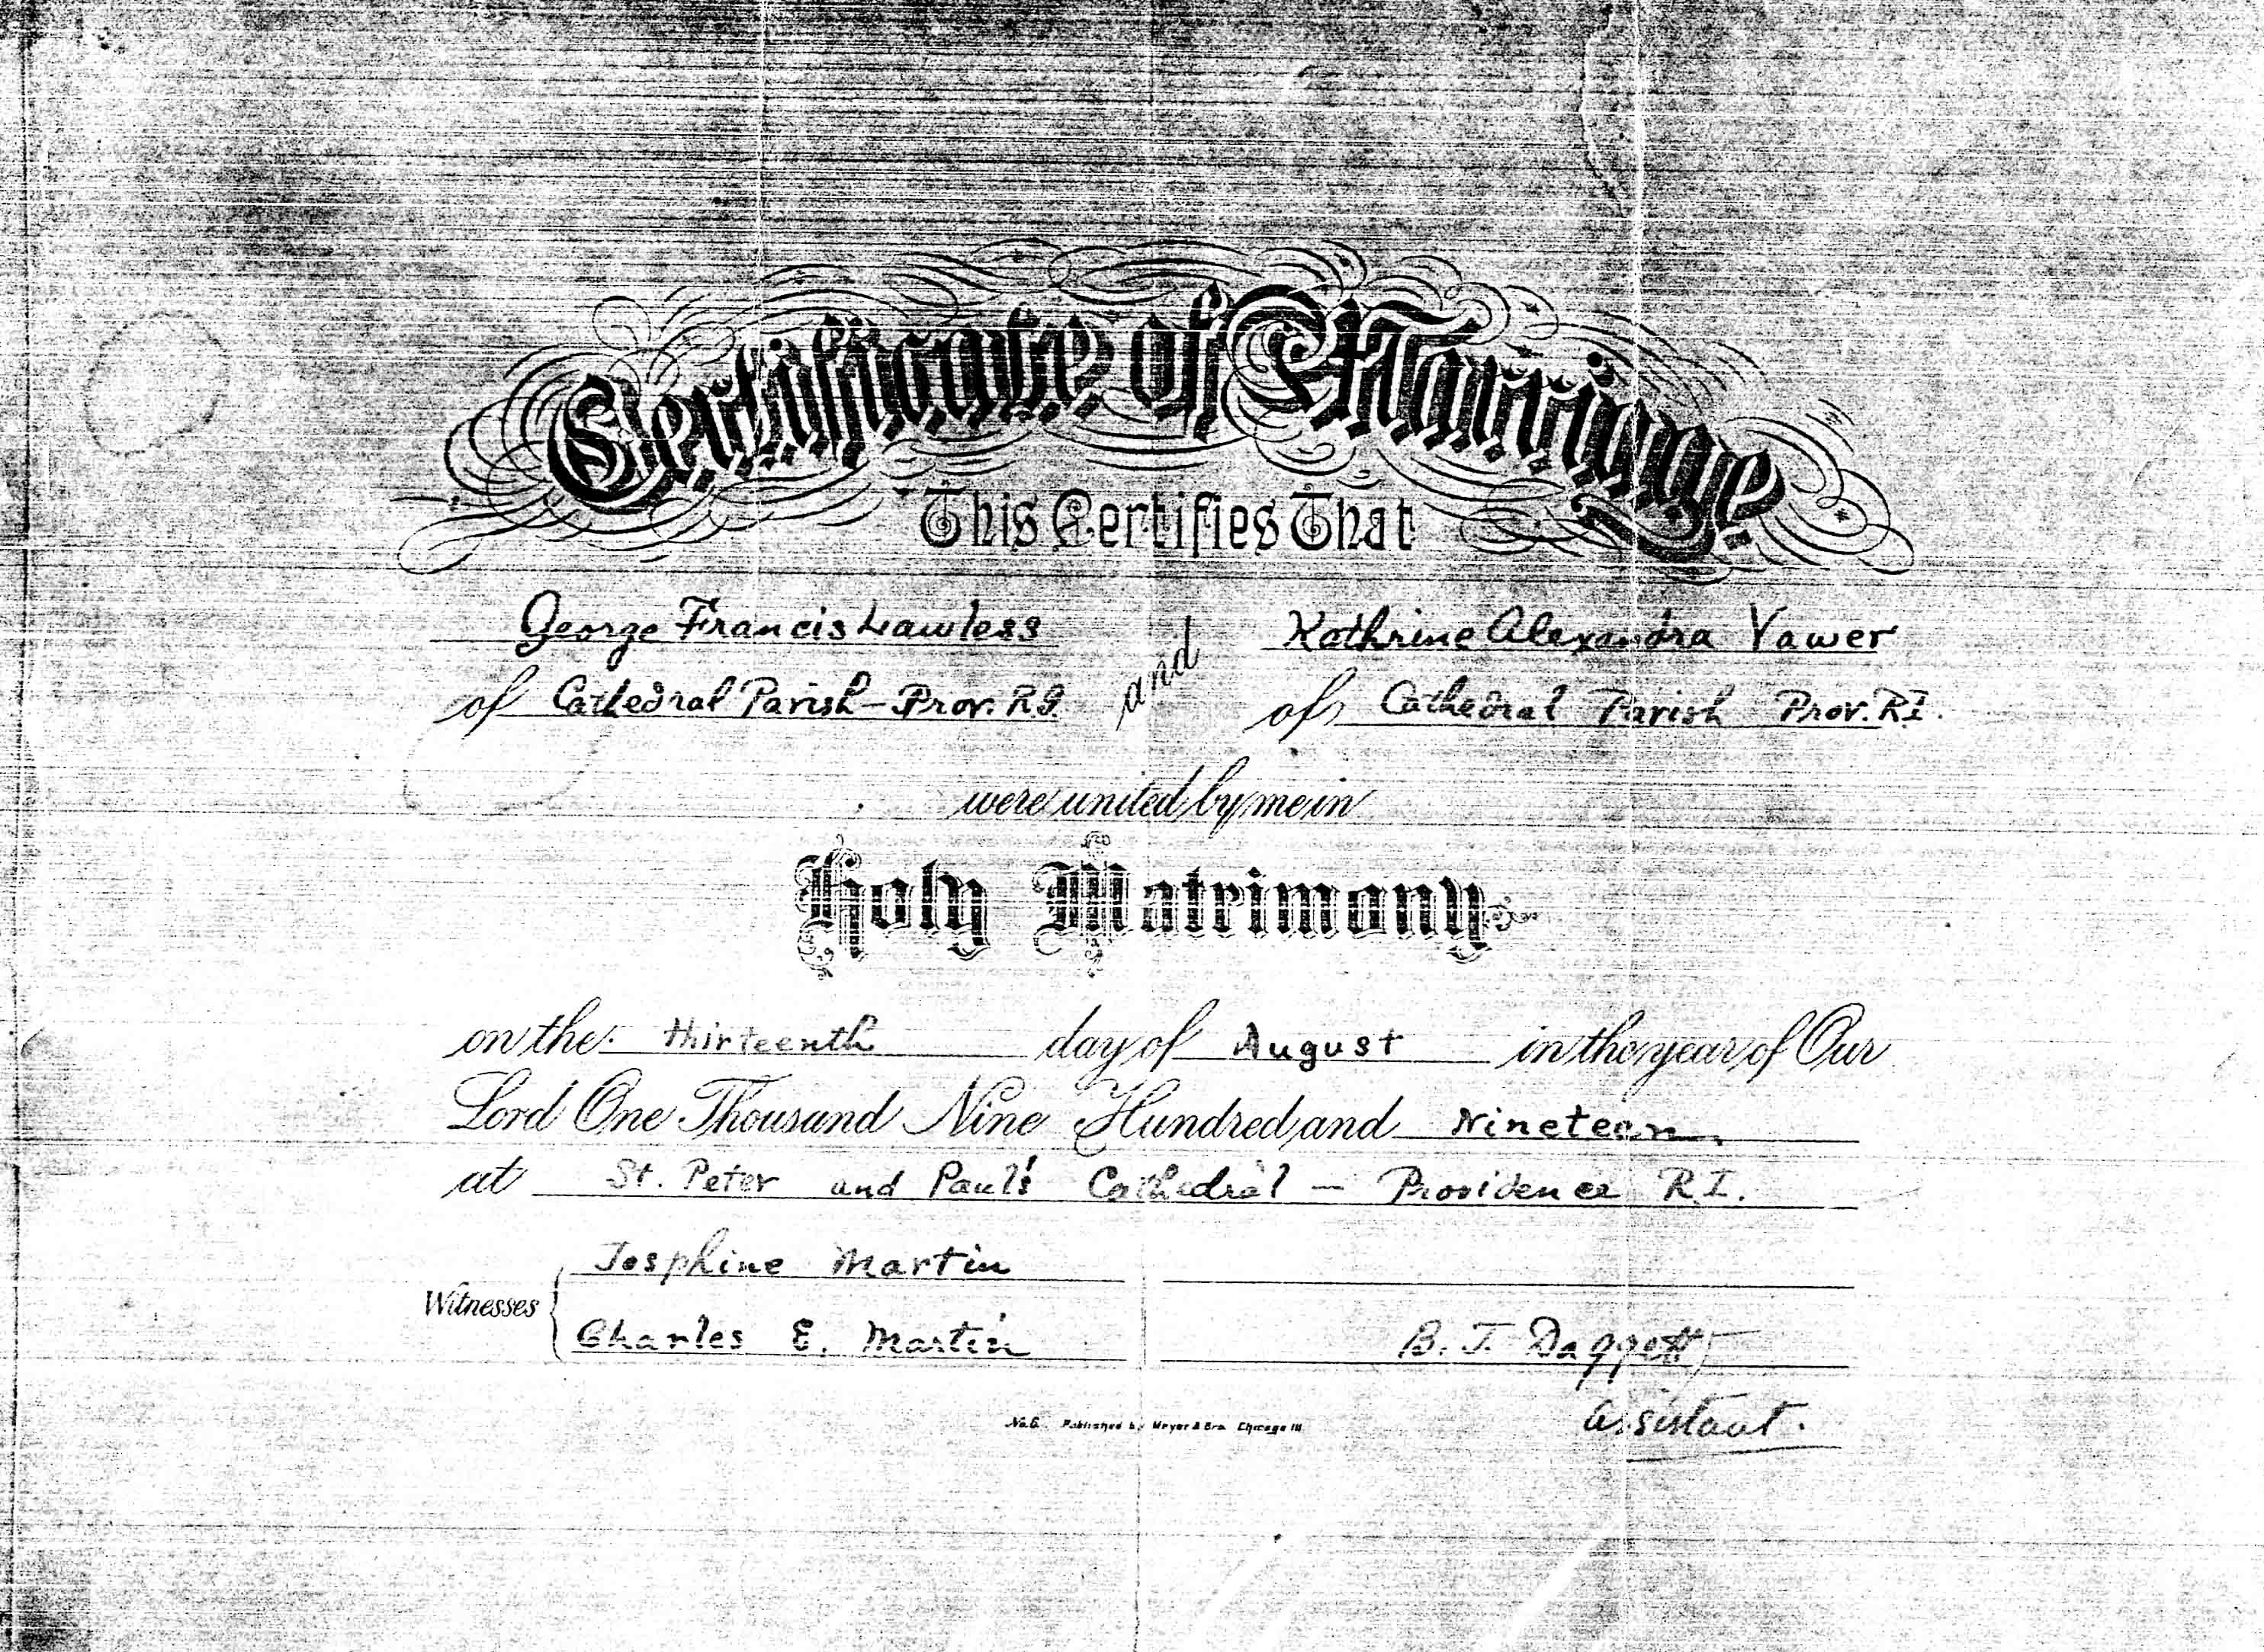 Certificate of Marriage
This Certifies That
George Francis Lawless and Kathrine Alexandra Vawer
of Cathedral Parish - Prov. R.I. of Cathedral Parish Prov. R.I.
were united by me in
Holy Matrimony
on the thirteenth day of August in the year of Our
Lord One Thousand Nine Hundred and Nineteen
at St. Peter and Paul's Cathedral - Providence R.I.
Josphine Martin
Witnesses
Charles E. Martin B. T. Daggett
Assistant.
No. 6. Published by Meyer & Bro. Chicago Ill.